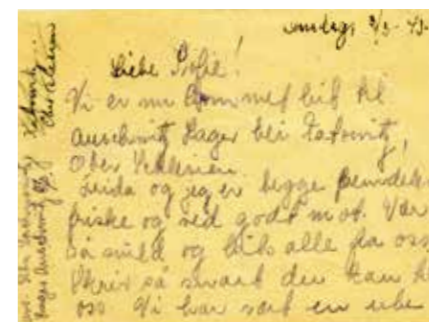 Onsdag, 3/3-43.
Liebe Sofie!
Vi er nu kommet hit til
Auschwitz Lager bei Katowitz,
Ober Schlesien
Linda og jeg er begge fremdeles
friske og ved godt mot. Vær
så snild og hils alle fra oss
Skriv så snart du kan
oss Vi har vært en
Auschwitz
Katowitz
Ober Schlesien